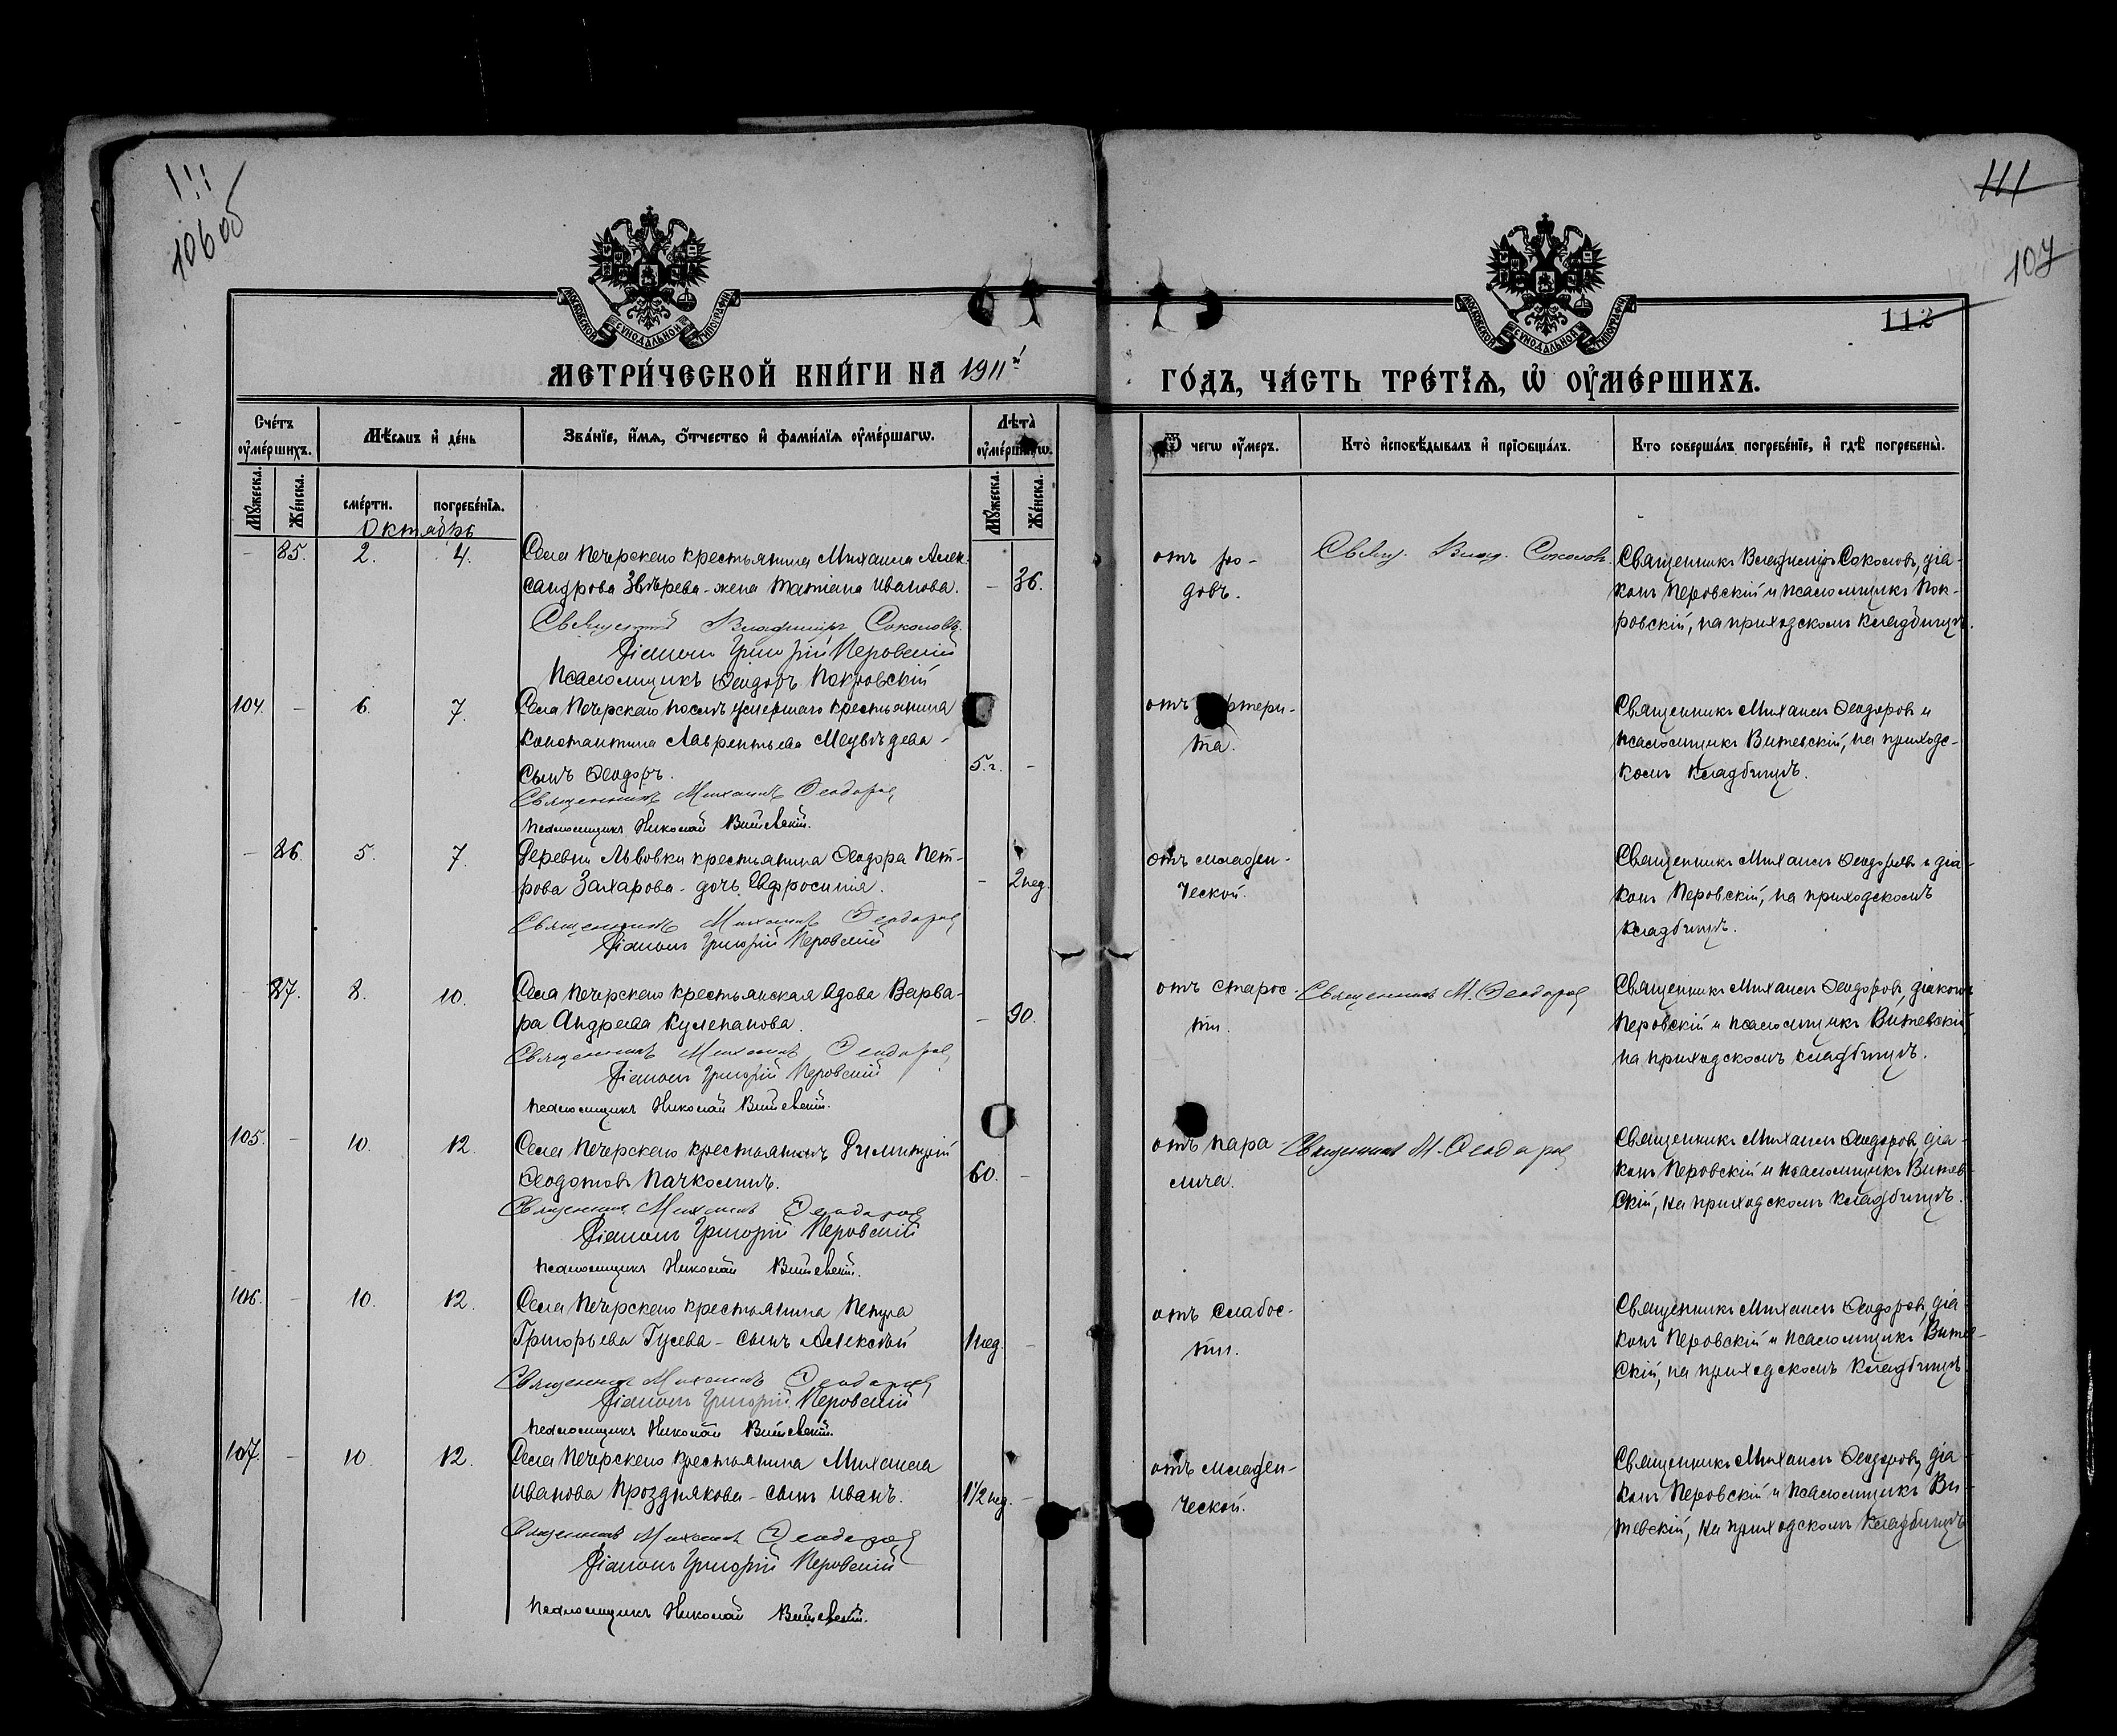 111
106 об
111
107
112
МОСКОВСКОЙ СѴНОДАЛЬНОЙ ТИПОГРАФІИ
МОСКОВСКОЙ СѴНОДАЛЬНОЙ ТИПОГРАФІИ
МЕТРИ́ЧЕСКОЙ КНИ́ГИ НА 1911й
ГО́ДЪ, ЧА́СТЬ ТРЕ́ТЇѦ, Ѡ҆ ОУ҆МЕ́РШИХЪ.
Сче́тъ оу҆ме́ршихъ.
Мѣ́сяцъ и҆ де́нь
Зва́нїе, и҆́мя, ѻ҆́тчество и҆ фами́лїя оу҆ме́ршагѡ.
Лѣта̀ оу҆ме́ршагѡ.
Ѿ чегѡ оу҆́меръ.
Кто̀ и҆сповѣ́дывалъ и҆ прїѻбща́лъ.
Кто соверша́лъ погребе́нїе, и҆ гдѣ̀ погребены̀.
Мꙋ́жеска.
Же́нска.
сме́рти.
погребе́нїя.
Мꙋ́жеска.
Же́нска.
Октябрь
- 85. 2. 4. Села Печерскаго крестьянина Михаила Алек-
сандрова Звѣрева - жена Татіана Иванова. - 36.
Священникъ Владиміръ Соколовъ
Діаконъ Григорій Перовскій
Псаломщикъ Ѳеодоръ Покровскій
отъ ро-
довъ.
Свящ. Влад. Соколовъ.
Священникъ Владиміръ Соколовъ, діа-
конъ Перовскій и псаломщикъ Пок-
ровскій, на приходскомъ кладбищѣ.
104. - 6. 7. Села Печерскаго послѣ умершаго крестьянина
Константина Лаврентьева Медвѣдева -
сынъ Ѳеодоръ. 5 г. -
Священникъ Михаилъ Ѳеодоровъ
Псаломщикъ Николай Витевскій.
отъ
та.
Священникъ Михаилъ Ѳеодоровъ и
псаломщикъ Витевскій, на приходс-
комъ кладбищѣ.
- 86. 5. 7. Деревни Львовки крестьянина Ѳеодора Пет-
рова Захарова - дочь Евфросинія. - 2 нед.
Священникъ Михаилъ Ѳеодоровъ
Діаконъ Григорій Перовскій
отъ младен-
ческой.
Священникъ Михаилъ Ѳеодоровъ и діа-
конъ Перовскій, на приходскомъ
кладбищѣ.
- 87. 8. 10. Села Печерскаго крестьянская вдова Варва-
ра Андреева Кулепанова. - 90.
Священникъ Михаилъ Ѳеодоровъ
Діаконъ Григорій Перовскій
Псаломщикъ Николай Витевскій.
отъ старос-
ти.
Священникъ М. Ѳеодоровъ
Священникъ Михаилъ Ѳеодоровъ, діаконъ
Перовскій и псаломщикъ Витевскій
на приходскомъ кладбищѣ.
105. - 10. 12. Села Печерскаго крестьянинъ Димитрій
Ѳеодотовъ Пачколинъ. 60. -
Священникъ Михаилъ Ѳеодоровъ
Діаконъ Григорій Перовскій
Псаломщикъ Николай Витевскій.
отъ пара-
лича.
Священникъ М. Ѳеодоровъ
Священникъ Михаилъ Ѳеодоровъ, діа-
конъ Перовскій и псаломщикъ Витев-
скій, на приходскомъ кладбищѣ.
106. - 10. 12. Села Печерскаго крестьянина
Григорьева Гусева - сынъ Алексѣй 1 нед. -
Священникъ Михаилъ Ѳеодоровъ
Діаконъ Григорій Перовскій
Псаломщикъ Николай Витевскій.
отъ слабос-
ти.
Священникъ Михаилъ Ѳеодоровъ, діа-
конъ Перовскій и псаломщикъ Витев-
скій, на приходскомъ кладбищѣ.
107. - 10. 12. Села Печерскаго крестьянина Михаила
Иванова Прозднякова - сынъ Иванъ. 1 1/2 нед. -
Священникъ Михаилъ Ѳеодоровъ
Діаконъ Григорій Перовскій
Псаломщикъ Николай Витевскій.
отъ младен-
ческой.
Священникъ Михаилъ Ѳеодоровъ, діа-
конъ Перовскій и псаломщикъ Ви-
тевскій, на приходскомъ кладбищѣ